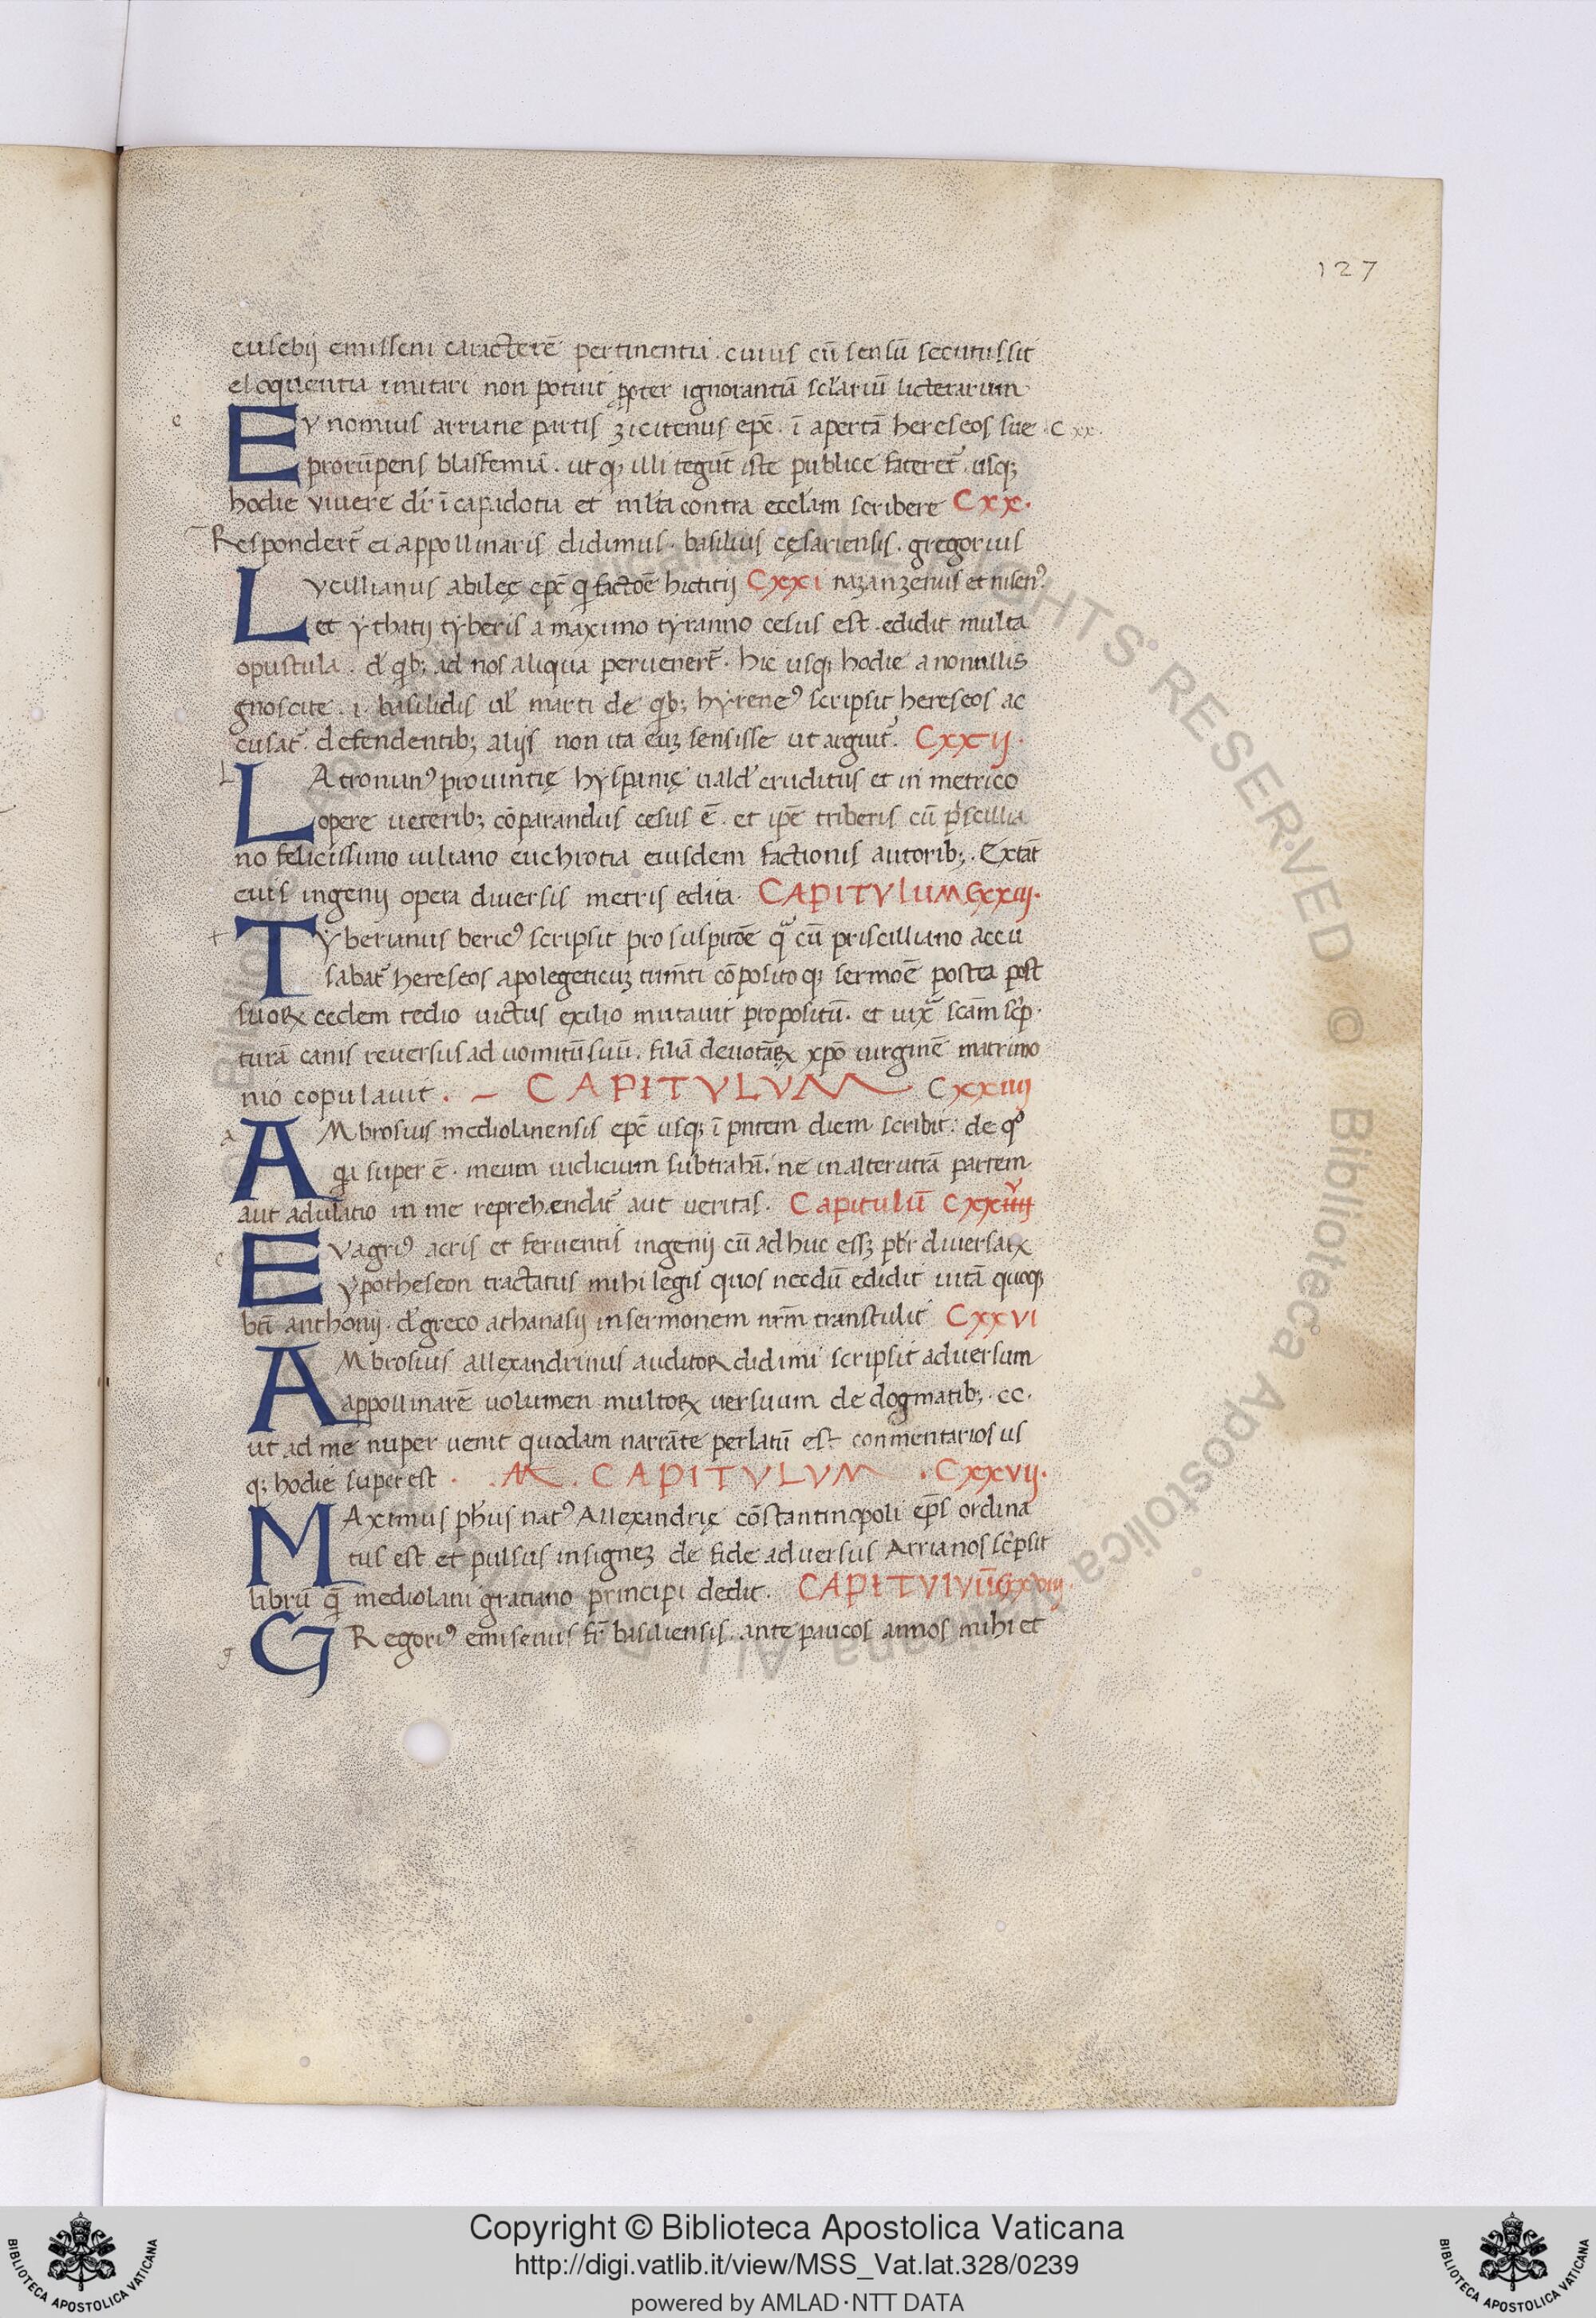 127
eusebij emisseni caracterē pertinentia . cuius cū sensū secutus sit
eloquentia imitari non potuit ꝓpter ignorantiā sclariū licterarum
e Eynomius arriane partis zicitenus epc̄ . ī apertā hereseos sue . Cxx.
prorūpens blasfemiā . ut qꝫ illi tegūt iste publice fateret̄ . usqꝫ
hodie vivere dr̄ ī capadotia et mlta contra eccl̄am scribere Cxx.
Respondert̄ ei appollinaris didimus . basilius cęsariensis . gregorius
Lvcillianus abileę epc̄ q̄ factoē hictitij Cxxi nazanzenus et nisenꝰ
et ythatij tyberis a maximo tyranno cesus est . edidit multa
opuscula . d̄ qbꝫ ad nos aliqua pervenert̄ . hic usqꝫ hodie a nonnullis
gnoscite . i . basilidis ul̄ marti de qbꝫ hyreneꝰ scripsit hereseos ac
cusat̄ . defendentibꝫ alijs non ita euꝫ sensisse ut arguit̄ . Cxxij .
l LAtronianꝰ provintię hyspanię vald̄ eruditus et in metrico
opere veteribꝫ cōparandus cesus ē . et ipē triberis cū pscillia
no felicissimo iuliano euchrotia eiusdem factionis autoribꝫ . Extāt
euis ingenij opera diversis metris edita . CAPITVlUM Cxxiij.
t Tyberianus bericꝰ scripsit pro suspitōe qᵃ cū priscilliano accu
sabat̄ hereseos apolegeticuꝫ tumn̄ti cōposito qꝫ sermoē postea post
suoꝝ cedem tedio victus exilio mutavit propositū . et iuxᵃ scām scp̄ .
turā canis reversus ad vomitū suū . filiā devotāꝝ xpō virginē matrimo
nio copulavit . – CAPITVLVM Cxxiiij
a AMbrosius mediolanensis epc̄ usqꝫ ī pn̄tem diem scribit . de qͦ
qa super ē . meum iudicium subtrahā . ne in alterutrā partem
aut adulatio in me reprehendat̄ aut veritas . Capitulū Cxxiiiij v
e Evagriꝰ acris et ferventis ingenij cū adhuc essꝫ pbr̄ diversaꝝ
ypotheseon tractatus mihi legis quos necdū edidit vitā quoqꝫ
bt̄i anthonij . d̄ greco athanasij in sermonem nr̄m transtulit Cxxvi
AMbrosius allexandrinus auditoꝝ didimi scripsit adversum
appollinarē volumen multoꝝ versuum de dogmatibꝫ . cc .
ut ad me nuper venit quodam narrāte perlatū est conmentarios us
qꝫ hodie superest . . CAPITVLVM . Cxxvij.
MAximus ph̄us natꝰ Allexandrię cōstantinopoli ep̄s ordina
tus est et pulsus insigneꝫ de fide adversus Arrianos scp̄sit
librū q̄ mediolani gratiano principi dedit . CAPITVlVū Cxxviij .
g GRegoriꝰ emisenus fr̄ basiliensis . ante paucos annos mihi et
Biblioteca Apostolica Vaticana ALL RIGHTS RESERVED ©
Copyright © Biblioteca Apostolica Vaticana
http://digi.vatlib.it/view/MSS_Vat.lat.328/0239
powered by AMLAD·NTT DATA
BIBLIOTECA APOSTOLICA VATICANA
BIBLIOTECA APOSTOLICA VATICANA